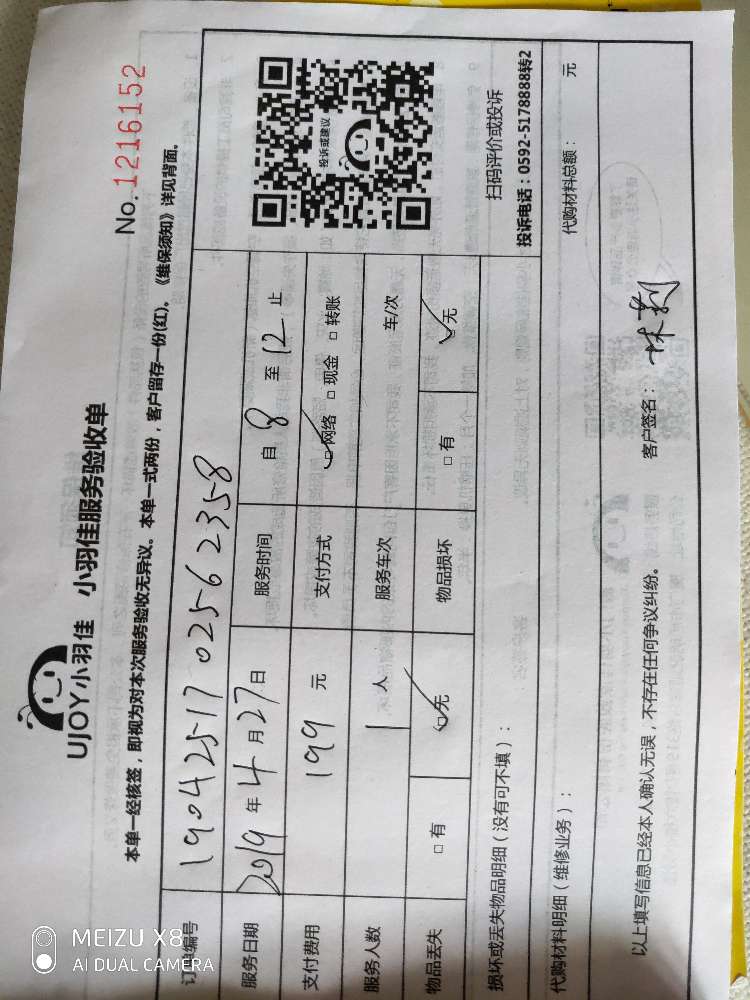 No.1216152
UJOY小羽佳 小羽佳服务验收单
本单一经核签，即视为对本次服务验收无异议。本单一式两份，客户留存一份(红)。《维保须知》详见背面。
订单编号 19042517 02562358
服务日期 2019 年 4 月 27 日 服务时间 自 8 至 12 止
支付费用 199 元 支付方式 ☑网络 □现金 □转账
服务人数 1 人 服务车次 车/次
物品丢失 □有 ☑无 物品损坏 □有 ☑无
投诉或建议
扫码评价或投诉
投诉电话：0592-5178888转2
损坏或丢失物品明细（没有可不填）：
代购材料明细（维修业务）： 代购材料总额： 元
以上填写信息已经本人确认无误，不存在任何争议纠纷。 客户签名：
MEIZU X8
AI DUAL CAMERA